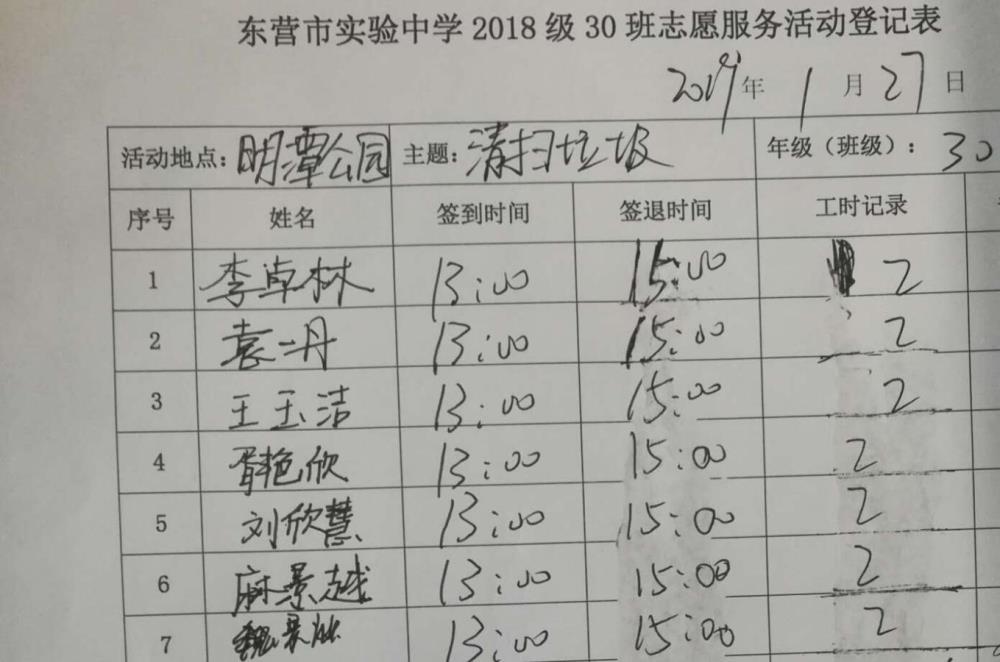 东营市实验中学2018级30班志愿服务活动登记表
2019年1月27日
活动地点：明潭公园 主题：清扫垃圾 年级（班级）：30
序号 姓名 签到时间 签退时间 工时记录
1 李卓林 13:00 15:00 2
2 袁一丹 13:00 15:00 2
3 王玉洁 13:00 15:00 2
4 胥艳欣 13:00 15:00 2
5 刘欣慧 13:00 15:00 2
6 麻景越 13:00 15:00 2
7 13:00 15:00 2